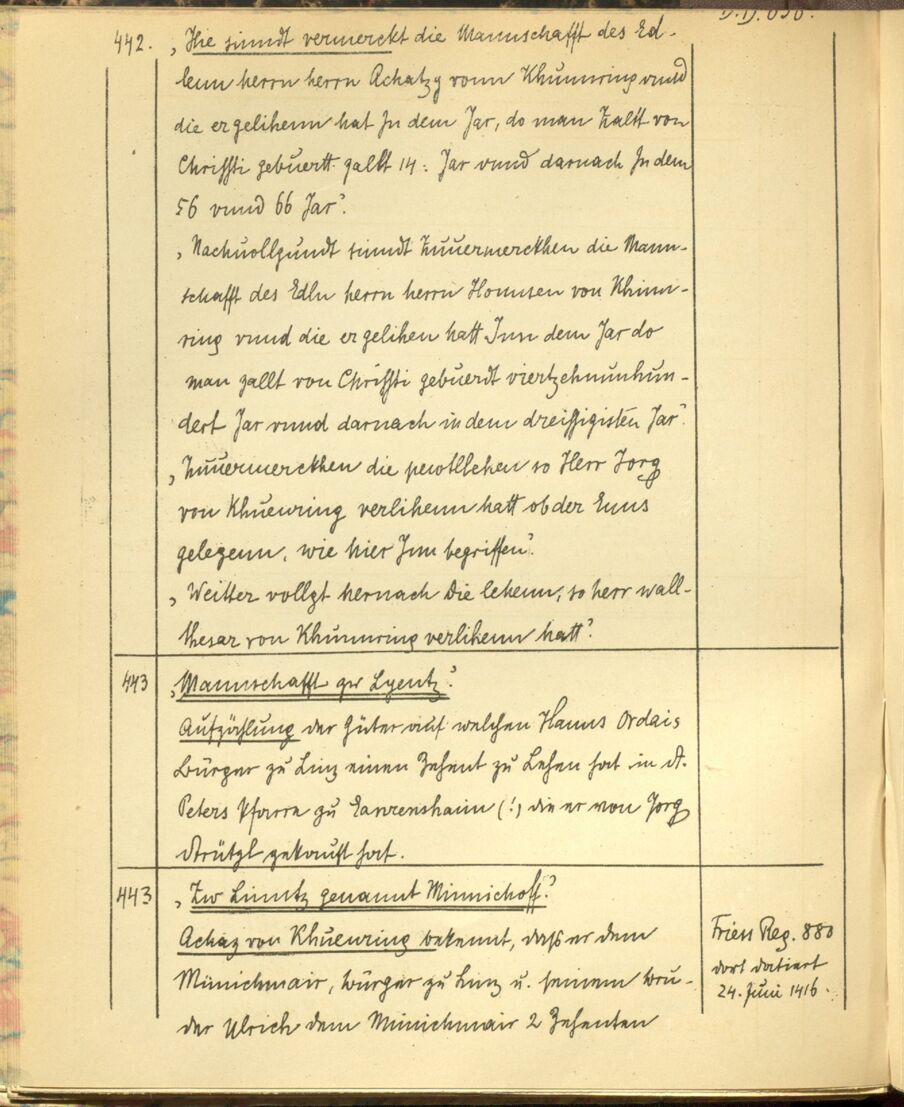 D.D. 636.
442. „Hie sinndt vermerckt die Mannschafft des Ed-
lenn herrn herrn Achatzy vonn Khunnring vnnd
die er gelihenn hat In dem Jar, do man Zaltt von
Chrissti gebuertt galtt 14: Jar vnnd darnach In dem
56 vnnd 66 Jar“.
„Nachuollgundt sinndt Zuuermerckhen die Mann-
schafft des Edln herrn herrn Hannsen von Khinn-
ring vnnd die er gelihen hatt Inn dem Jar do
man zallt von Chrissti gebuerdt viertzehnunhun-
dert Jar vnnd darnach in dem dreissigisten Jar“.
„Zuuermerckhen die lehen so Herr Jorg
von Khuenring verlihenn hatt ob der Enns
gelegenn, wie hier Inn begriffen“.
„Weitter vollgt hernach Die lehenn, so herr wall-
thesar von Khunnring verlihenn hatt“.
443 „Mannschafft zw Lyentz“.
Aufzählung der Güter auf welchen Hanns Ordais
Bürger zu Linz einen Zehent zu Lehen hat in St.
Peters Pfarre zu (!) die er von Jorg
Strützl gekauft hat.
443 „Zw Linntz genannt Minnichoff“.
Achaz von Khuenring bekennt, dass er dem
Münichmair, Bürger zu Linz u. seinem Bru-
der Ulrich dem Münichmair 2 Zehenten
Friess Reg. 880
dort datiert
24. Juni 1416.